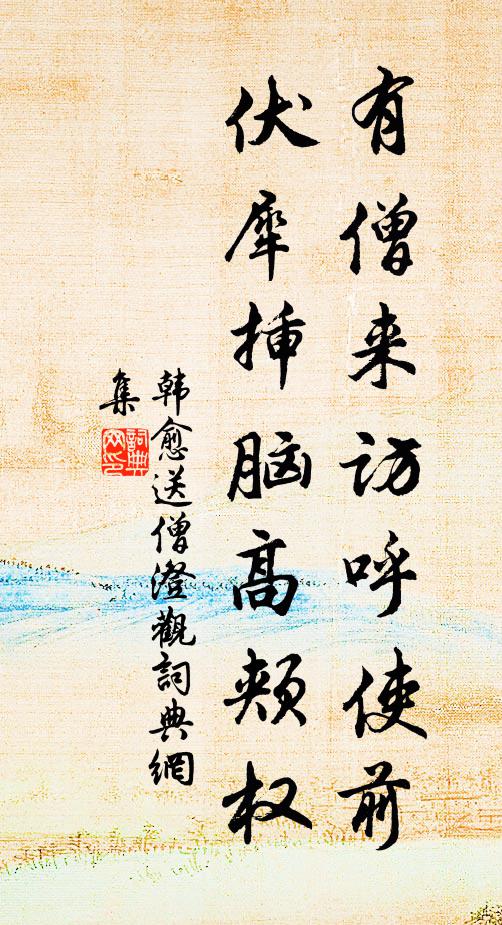 有僧来访呼使前
伏犀插脑高颊权
韩愈送僧澄觀詞典網
集
詞典網印